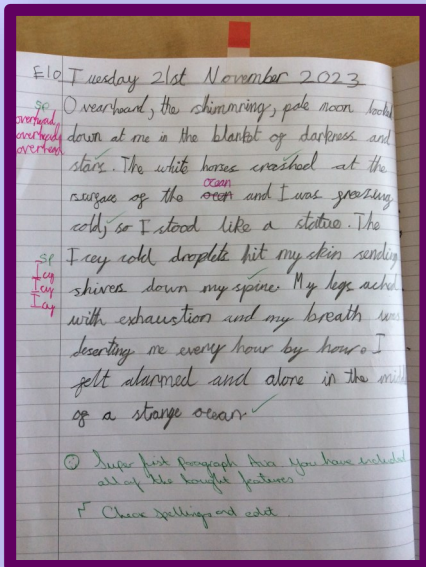 E10 Tuesday 21st November 2023
sp Overheard, the shimmring, pale moon looked
overhead
down at me in the blanket of darkness and
overhead
overhead
stars. The white horses crashed at the
ocean
surface of the ocean and I was freezing
cold, so I stood like a statue. The
sp Icey cold droplets hit my skin sending
Icy
shivers down my spine. My legs ached
Icy
Icy
with exhaustion and my breath was
deserting me every hour by hour. I
felt alarmed and alone in the
of a strange ocean.
Super first paragraph Ava. You have included
all of the taught features.
Check spellings and edit.